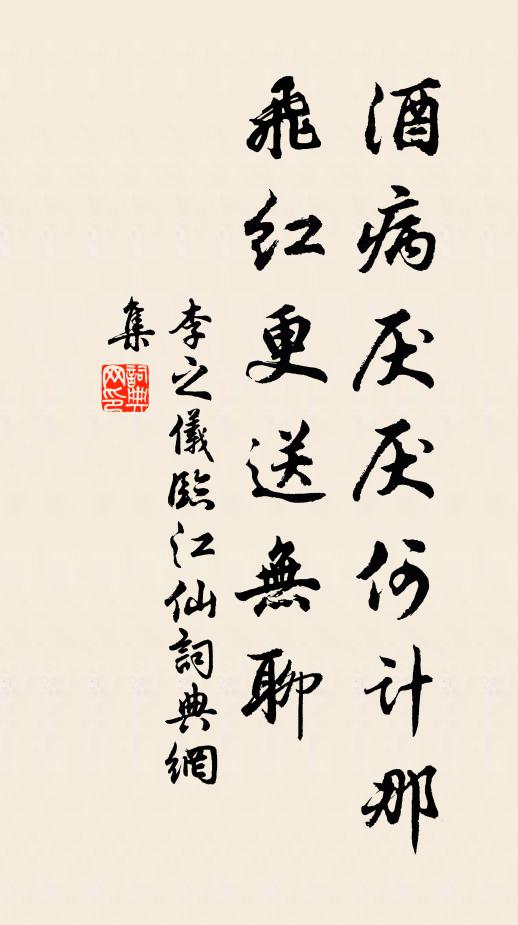 酒病厌厌何计那
飛红更送無聊
李之儀臨江仙詞典網
集
詞典网印